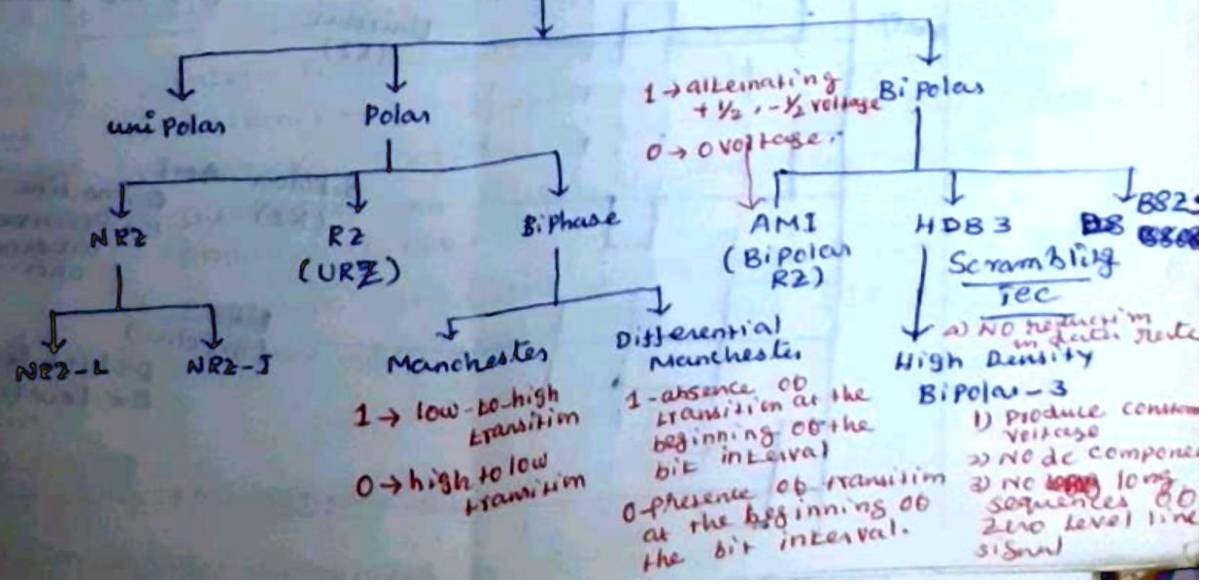 uni Polar
Polar
1 → alternating
+ 1/2, - 1/2 voltage
0 → 0 voltage.
Bipolar
NRZ
RZ
(URZ)
BiPhase
AMI
(Bipolar
RZ)
HDB3
B8ZS
Scrambling
Tec
a) NO reduction
in data rate
NRZ-L
NRZ-I
Manchester
1 → low-to-high
transition
0 → high to low
transition
Differential
Manchester
1 - absence of
transition at the
beginning of the
bit interval
0 - presence of transition
at the beginning of
the bit interval.
High Density
BiPolar-3
1) Produce
voltage
2) NO dc
3) NO long
sequences of
Zero level line
signal